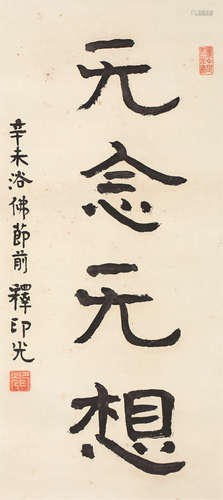 无念无想
辛未浴佛節前 釋印光